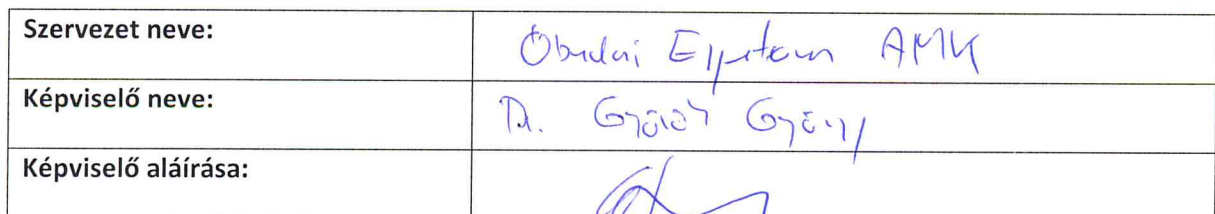 Szervezet neve: Óbudai Egyetem AMK
Képviselő neve: Dr. Györök György
Képviselő aláírása: